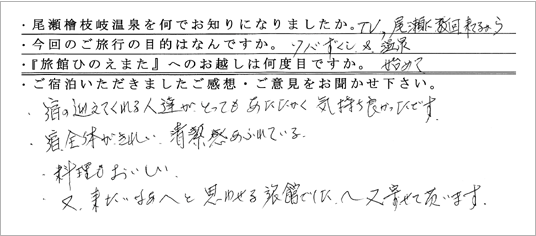 ・尾瀬檜枝岐温泉を何でお知りになりましたか。TV、尾瀬に数回来てるから
・今回のご旅行の目的はなんですか。リバずくし & 温泉
・『旅館ひのえまた』へのお越しは何度目ですか。始めて
・ご宿泊いただきましたご感想・ご意見をお聞かせ下さい。
・宿の迎えてくれる人達が、とってもあたたかく気持ち良かったです。
・宿全体がきれい、清潔感あふれている。
・料理もおいしい
・又、来たいなあ〜と思わせる旅館でした、〜又寄せて頂います。